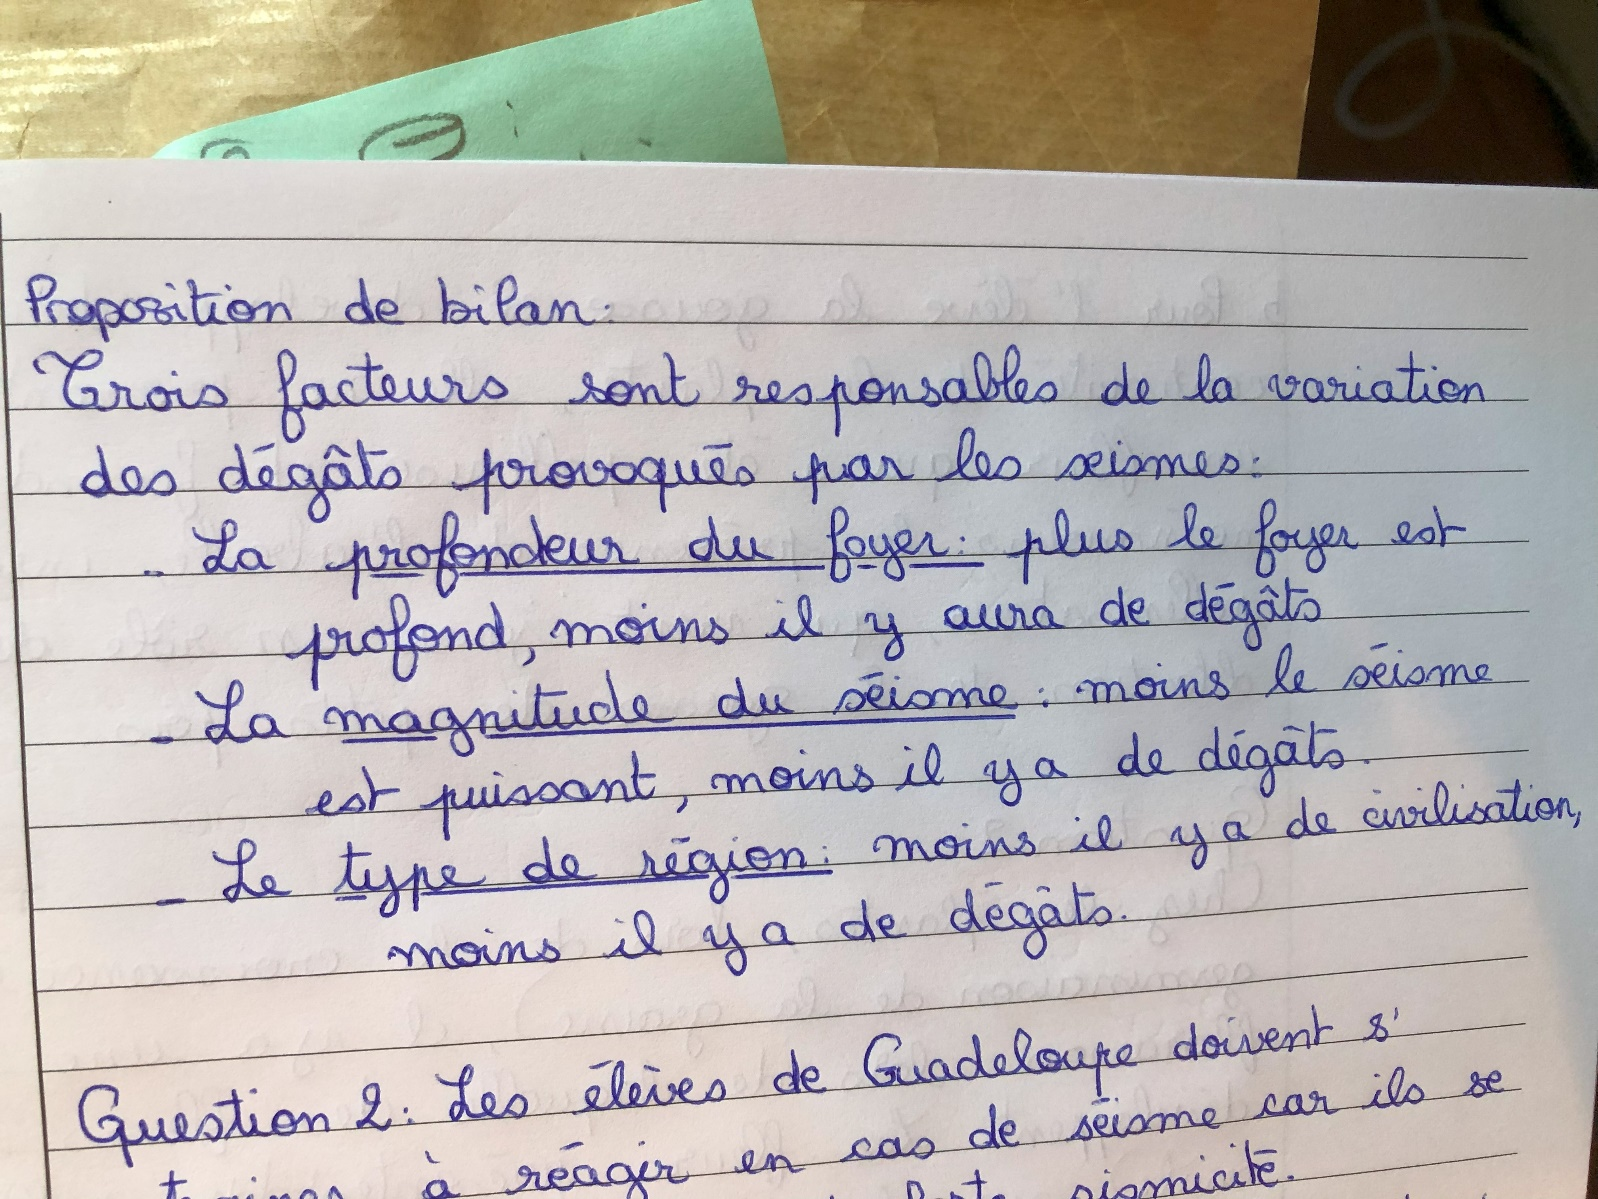 Proposition de bilan:
Trois facteurs sont responsables de la variation
des dégâts provoqués par les seismes:
- La profondeur du foyer: plus le foyer est
profond, moins il y aura de dégâts
- La magnitude du séisme: moins le séisme
est puissant, moins il y a de dégâts.
- Le type de région: moins il y a de civilisation,
moins il y a de dégâts.
Question 2: Les élèves de Guadeloupe doivent s'
à réagir en cas de séisme car ils se
sismicité.